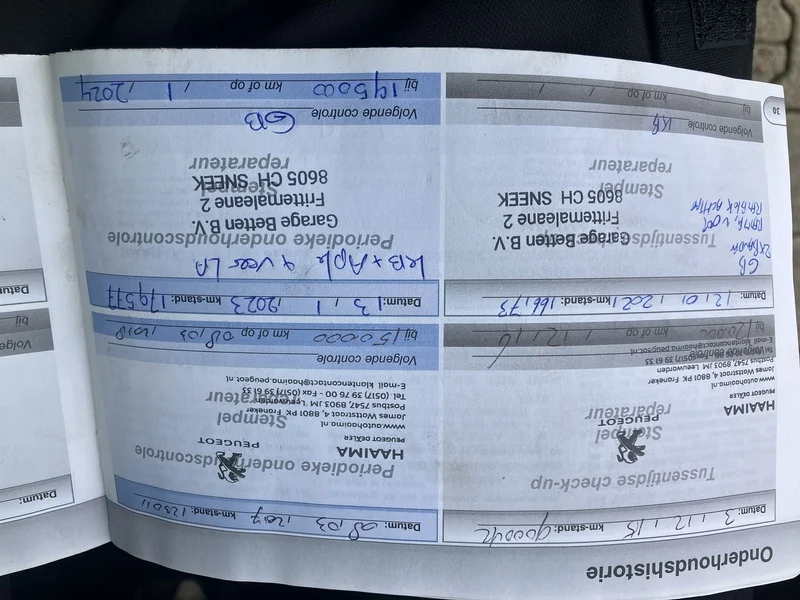 Onderhoudshistorie
Datum: 3 / 12 / 15 km-stand: 90004
Tussentijdse check-up
Stempel
reparateur
PEUGEOT
HAAIMA
PEUGEOT DEALER
www.autohaaima.nl
James Wattstraat 4, 8801 PK Franeker
Postbus 7547, 8903 JM Leeuwarden
E-mail klantencontact@haaima.peugeot.nl
Volgende controle
bij km of op
Datum: 08 / 03 / 2017 km-stand:
Periodieke onderhoudscontrole
Stempel
reparateur
PEUGEOT
HAAIMA
PEUGEOT DEALER
www.autohaaima.nl
James Wattstraat 4, 8801 PK Franeker
Postbus 7547, 8903 JM Leeuwarden
Tel. (0517) 39 00 76 - Fax (0517) 39 61 33
E-mail klantencontact@haaima.peugeot.nl
Volgende controle
bij 150.000 km of op 08 / 03 / 2018
Datum: 12 / 01 / 2021 km-stand: 166,73
Tussentijdse check-up
GB
Garage Betten B.V.
Frittemaleane 2
8605 CH SNEEK
Stempel
reparateur
Volgende controle KB
bij / / km of op / /
Datum: 13 / 1 / 2023 km-stand: 179,577
KB + Apk
Periodieke onderhoudscontrole
Garage Betten B.V.
Frittemaleane 2
8605 CH SNEEK
Stempel
reparateur
Volgende controle GB
bij 195000 km of op / 1 / 2024
30
Datum:
Volgende controle
bij
Datum: